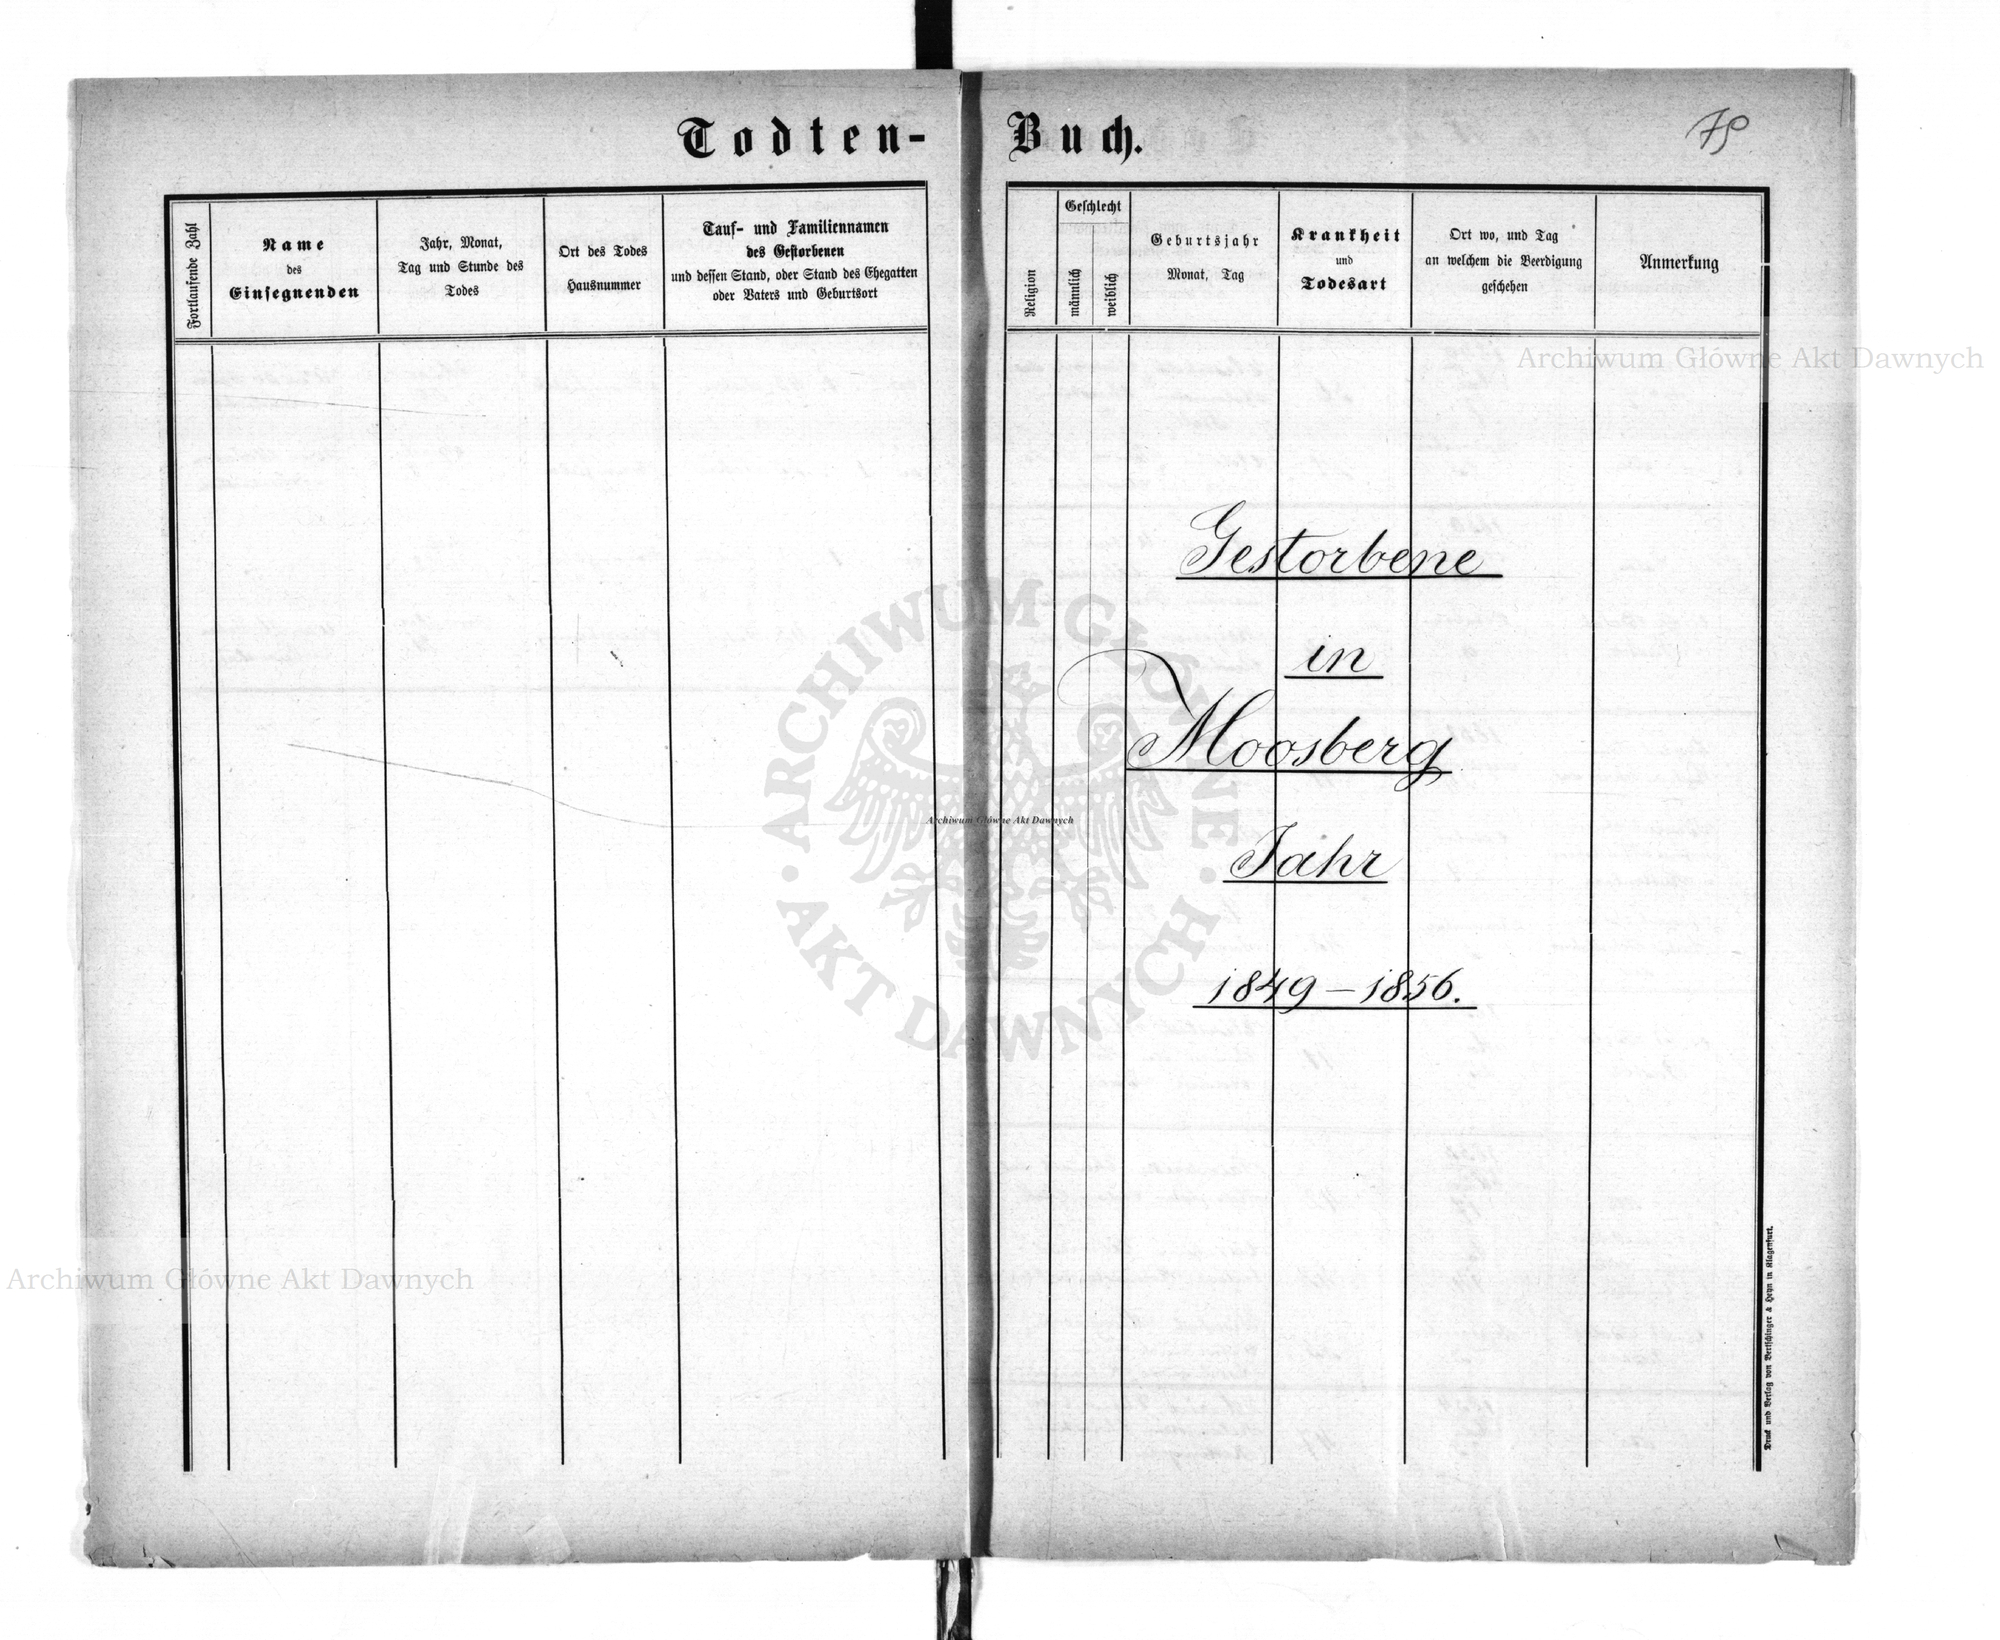 Todten-Buch.
79
Fortlaufende Zahl
Name
des
Einsegnenden
Jahr, Monat,
Tag und Stunde des
Todes
Ort des Todes
Hausnummer
Tauf- und Familiennamen
des Gestorbenen
und dessen Stand, oder Stand des Ehegatten
oder Vaters und Geburtsort
Religion
Geschlecht
männlich
weiblich
Geburtsjahr
Monat, Tag
Krankheit
und
Todesart
Ort wo, und Tag
an welchem die Beerdigung
geschehen
Anmerkung
Archiwum Główne Akt Dawnych
Gestorbene
in
Moosberg
Jahr
1849-1856.
ARCHIWUM GŁÓWNE
AKT DAWNYCH
Archiwum Główne Akt Dawnych
Archiwum Główne Akt Dawnych
Druck und Verlag von Bertschinger & Heyn in Klagenfurt.